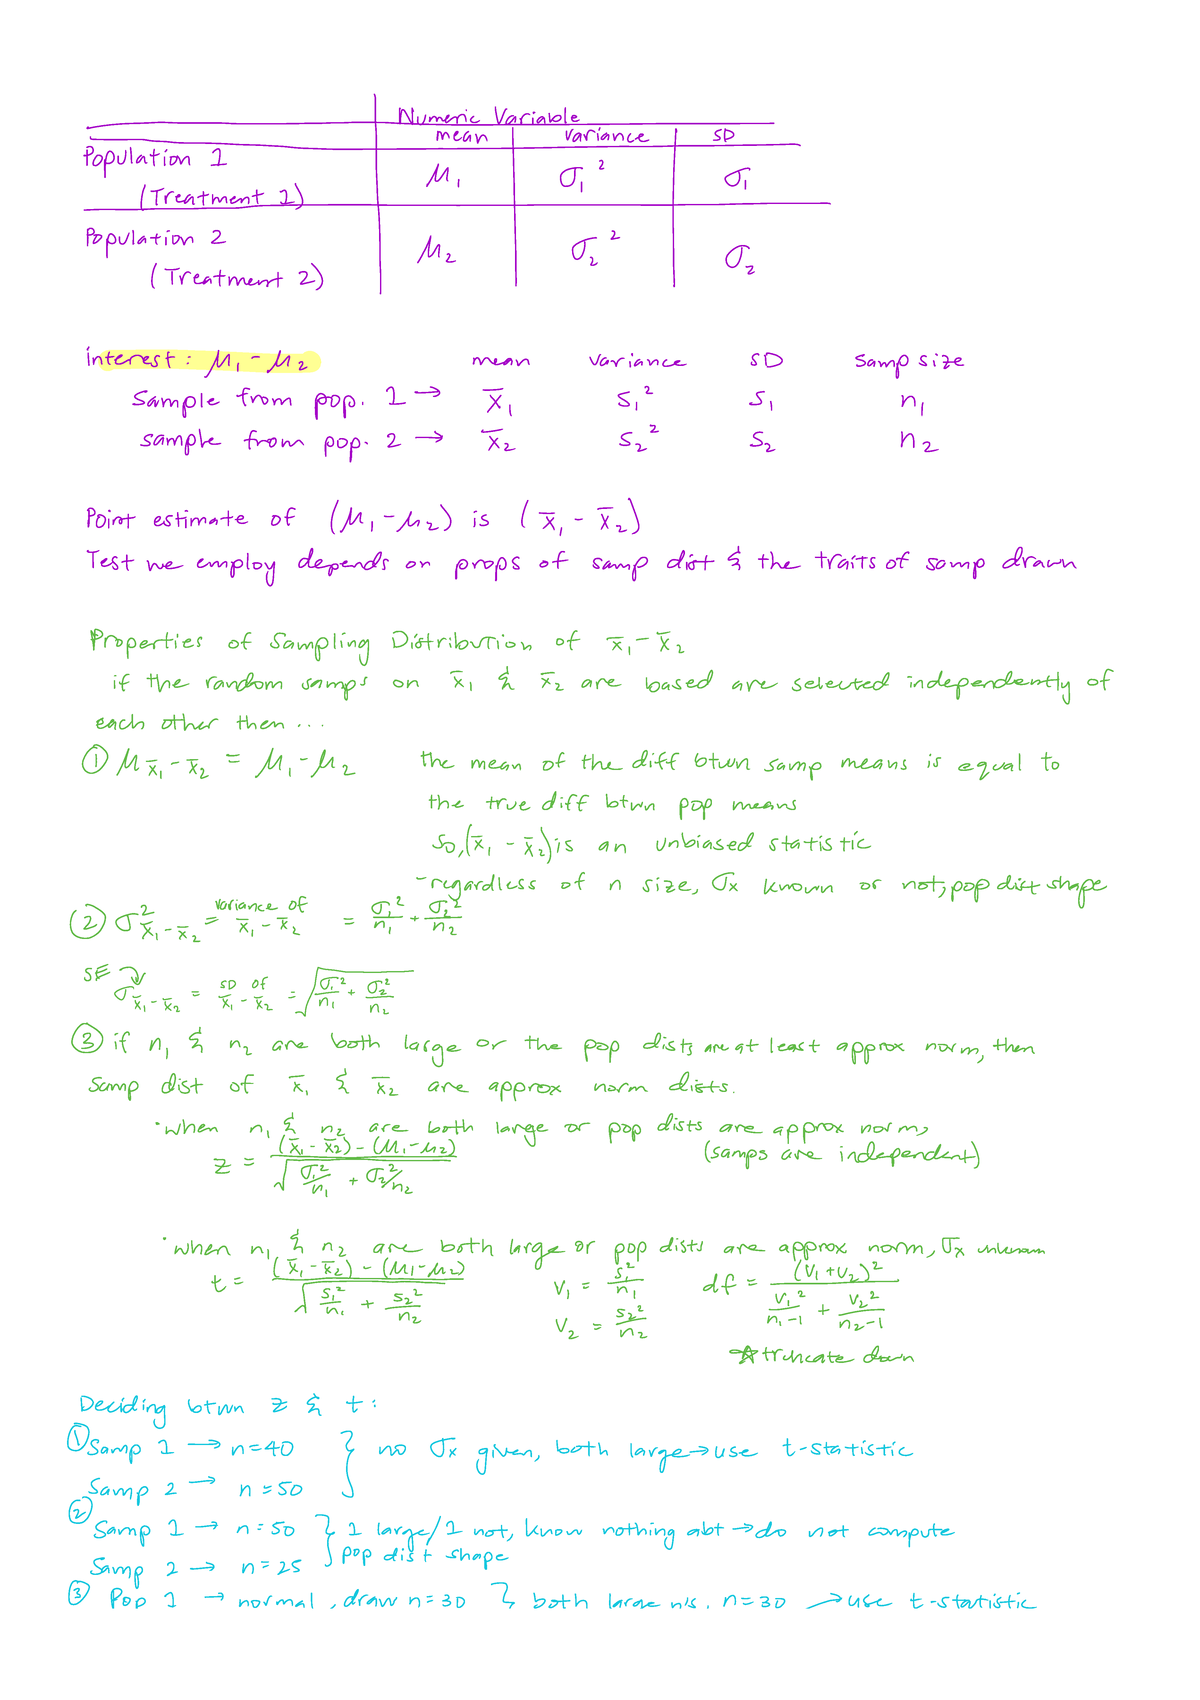 Numeric Variable
mean variance SD
Population 1 μ₁ σ₁² σ₁
(Treatment 1)
Population 2 μ₂ σ₂² σ₂
(Treatment 2)
interest: μ₁ - μ₂ mean variance SD samp size
Sample from pop. 1 → x̄₁ s₁² s₁ n₁
sample from pop. 2 → x̄₂ s₂² s₂ n₂
Point estimate of (μ₁ - μ₂) is (x̄₁ - x̄₂)
Test we employ depends on props of samp dist & the traits of samp drawn
Properties of Sampling Distribution of x̄₁ - x̄₂
if the random samps on x̄₁ & x̄₂ are based are selected independently of
each other then ...
① μ x̄₁ - x̄₂ = μ₁ - μ₂ the mean of the diff btwn samp means is equal to
the true diff btwn pop means
so, (x̄₁ - x̄₂) is an unbiased statistic
- regardless of n size, σx known or not, pop dist shape
② σ² x̄₁ - x̄₂ = variance of x̄₁ - x̄₂ = σ₁²/n₁ + σ₂²/n₂
SE
σ x̄₁ - x̄₂ = SD of x̄₁ - x̄₂ = √(σ₁²/n₁ + σ₂²/n₂)
③ if n₁ & n₂ are both large or the pop dists are at least approx norm, then
samp dist of x̄₁ & x̄₂ are approx norm dists.
· when n₁ & n₂ are both large or pop dists are approx norm,
(samps are independent)
z = ((x̄₁ - x̄₂) - (μ₁ - μ₂)) / √(σ₁²/n₁ + σ₂²/n₂)
· when n₁ & n₂ are both large or pop dists are approx norm, σx unknown
t = ((x̄₁ - x̄₂) - (μ₁ - μ₂)) / √(s₁²/n₁ + s₂²/n₂) V₁ = s₁²/n₁ df = (V₁ + V₂)² / (V₁²/(n₁-1) + V₂²/(n₂-1))
V₂ = s₂²/n₂
☆ truncate down
Deciding btwn z & t:
① Samp 1 → n=40 } no σx given, both large → use t-statistic
Samp 2 → n=50
② Samp 1 → n=50 } 1 large/1 not, know nothing abt → do not compute
Samp 2 → n=25 pop dist shape
③ Pop 1 → normal, draw n=30 } both large n's. n=30 → use t-statistic